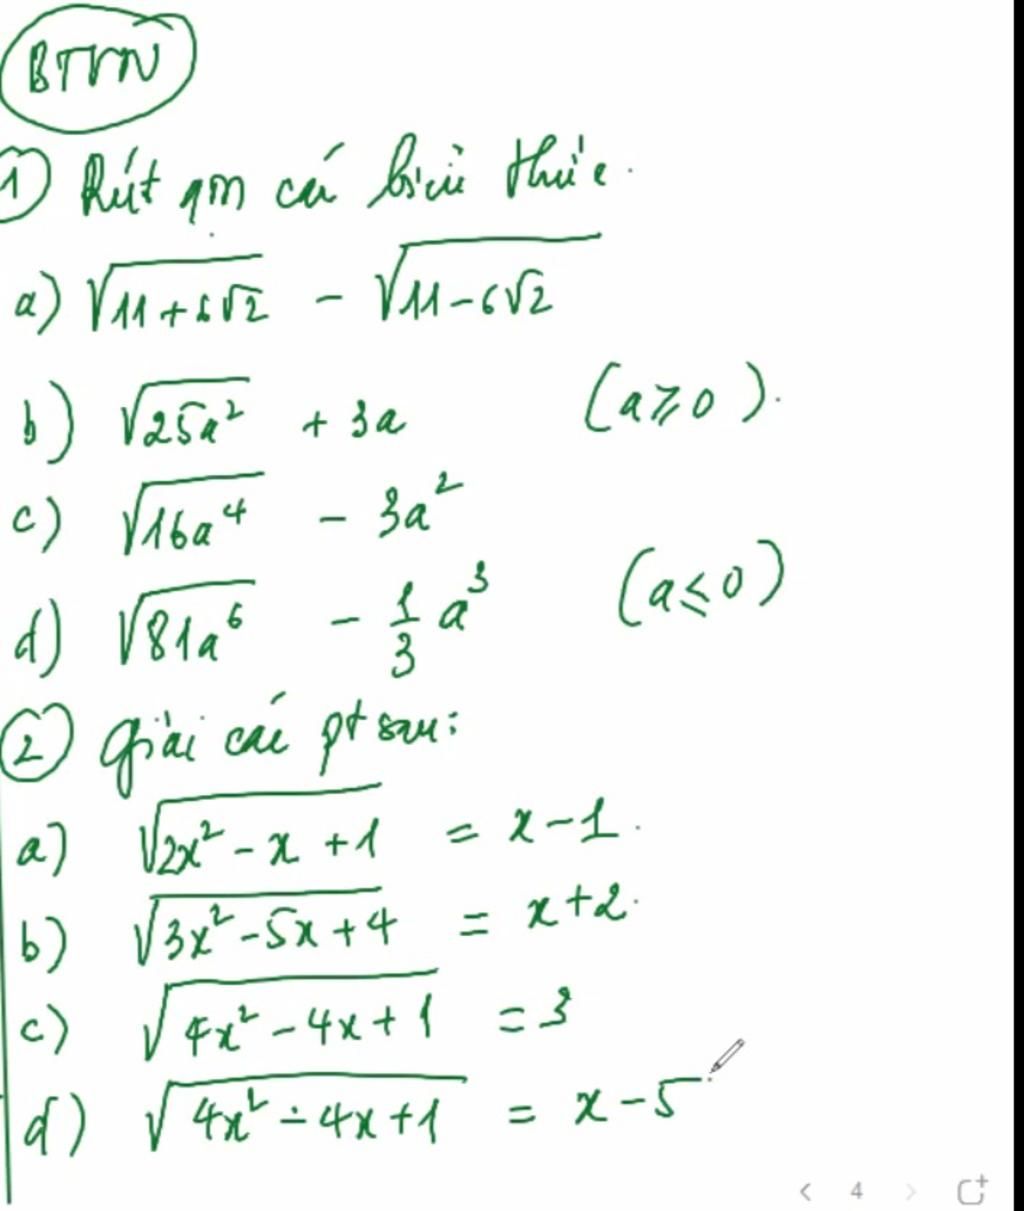 BTVN
① Rút gọn các biểu thức.
a) √(11+6√2) - √(11-6√2)
b) √(25a²) + 3a (a ≥ 0).
c) √(16a⁴) - 3a²
d) √(81a⁶) - 1/3 a³ (a ≤ 0)
② Giải các pt sau:
a) √(2x² - x + 1) = x - 1.
b) √(3x² - 5x + 4) = x + 2.
c) √(4x² - 4x + 1) = 3
d) √(4x² - 4x + 1) = x - 5
< 4 >